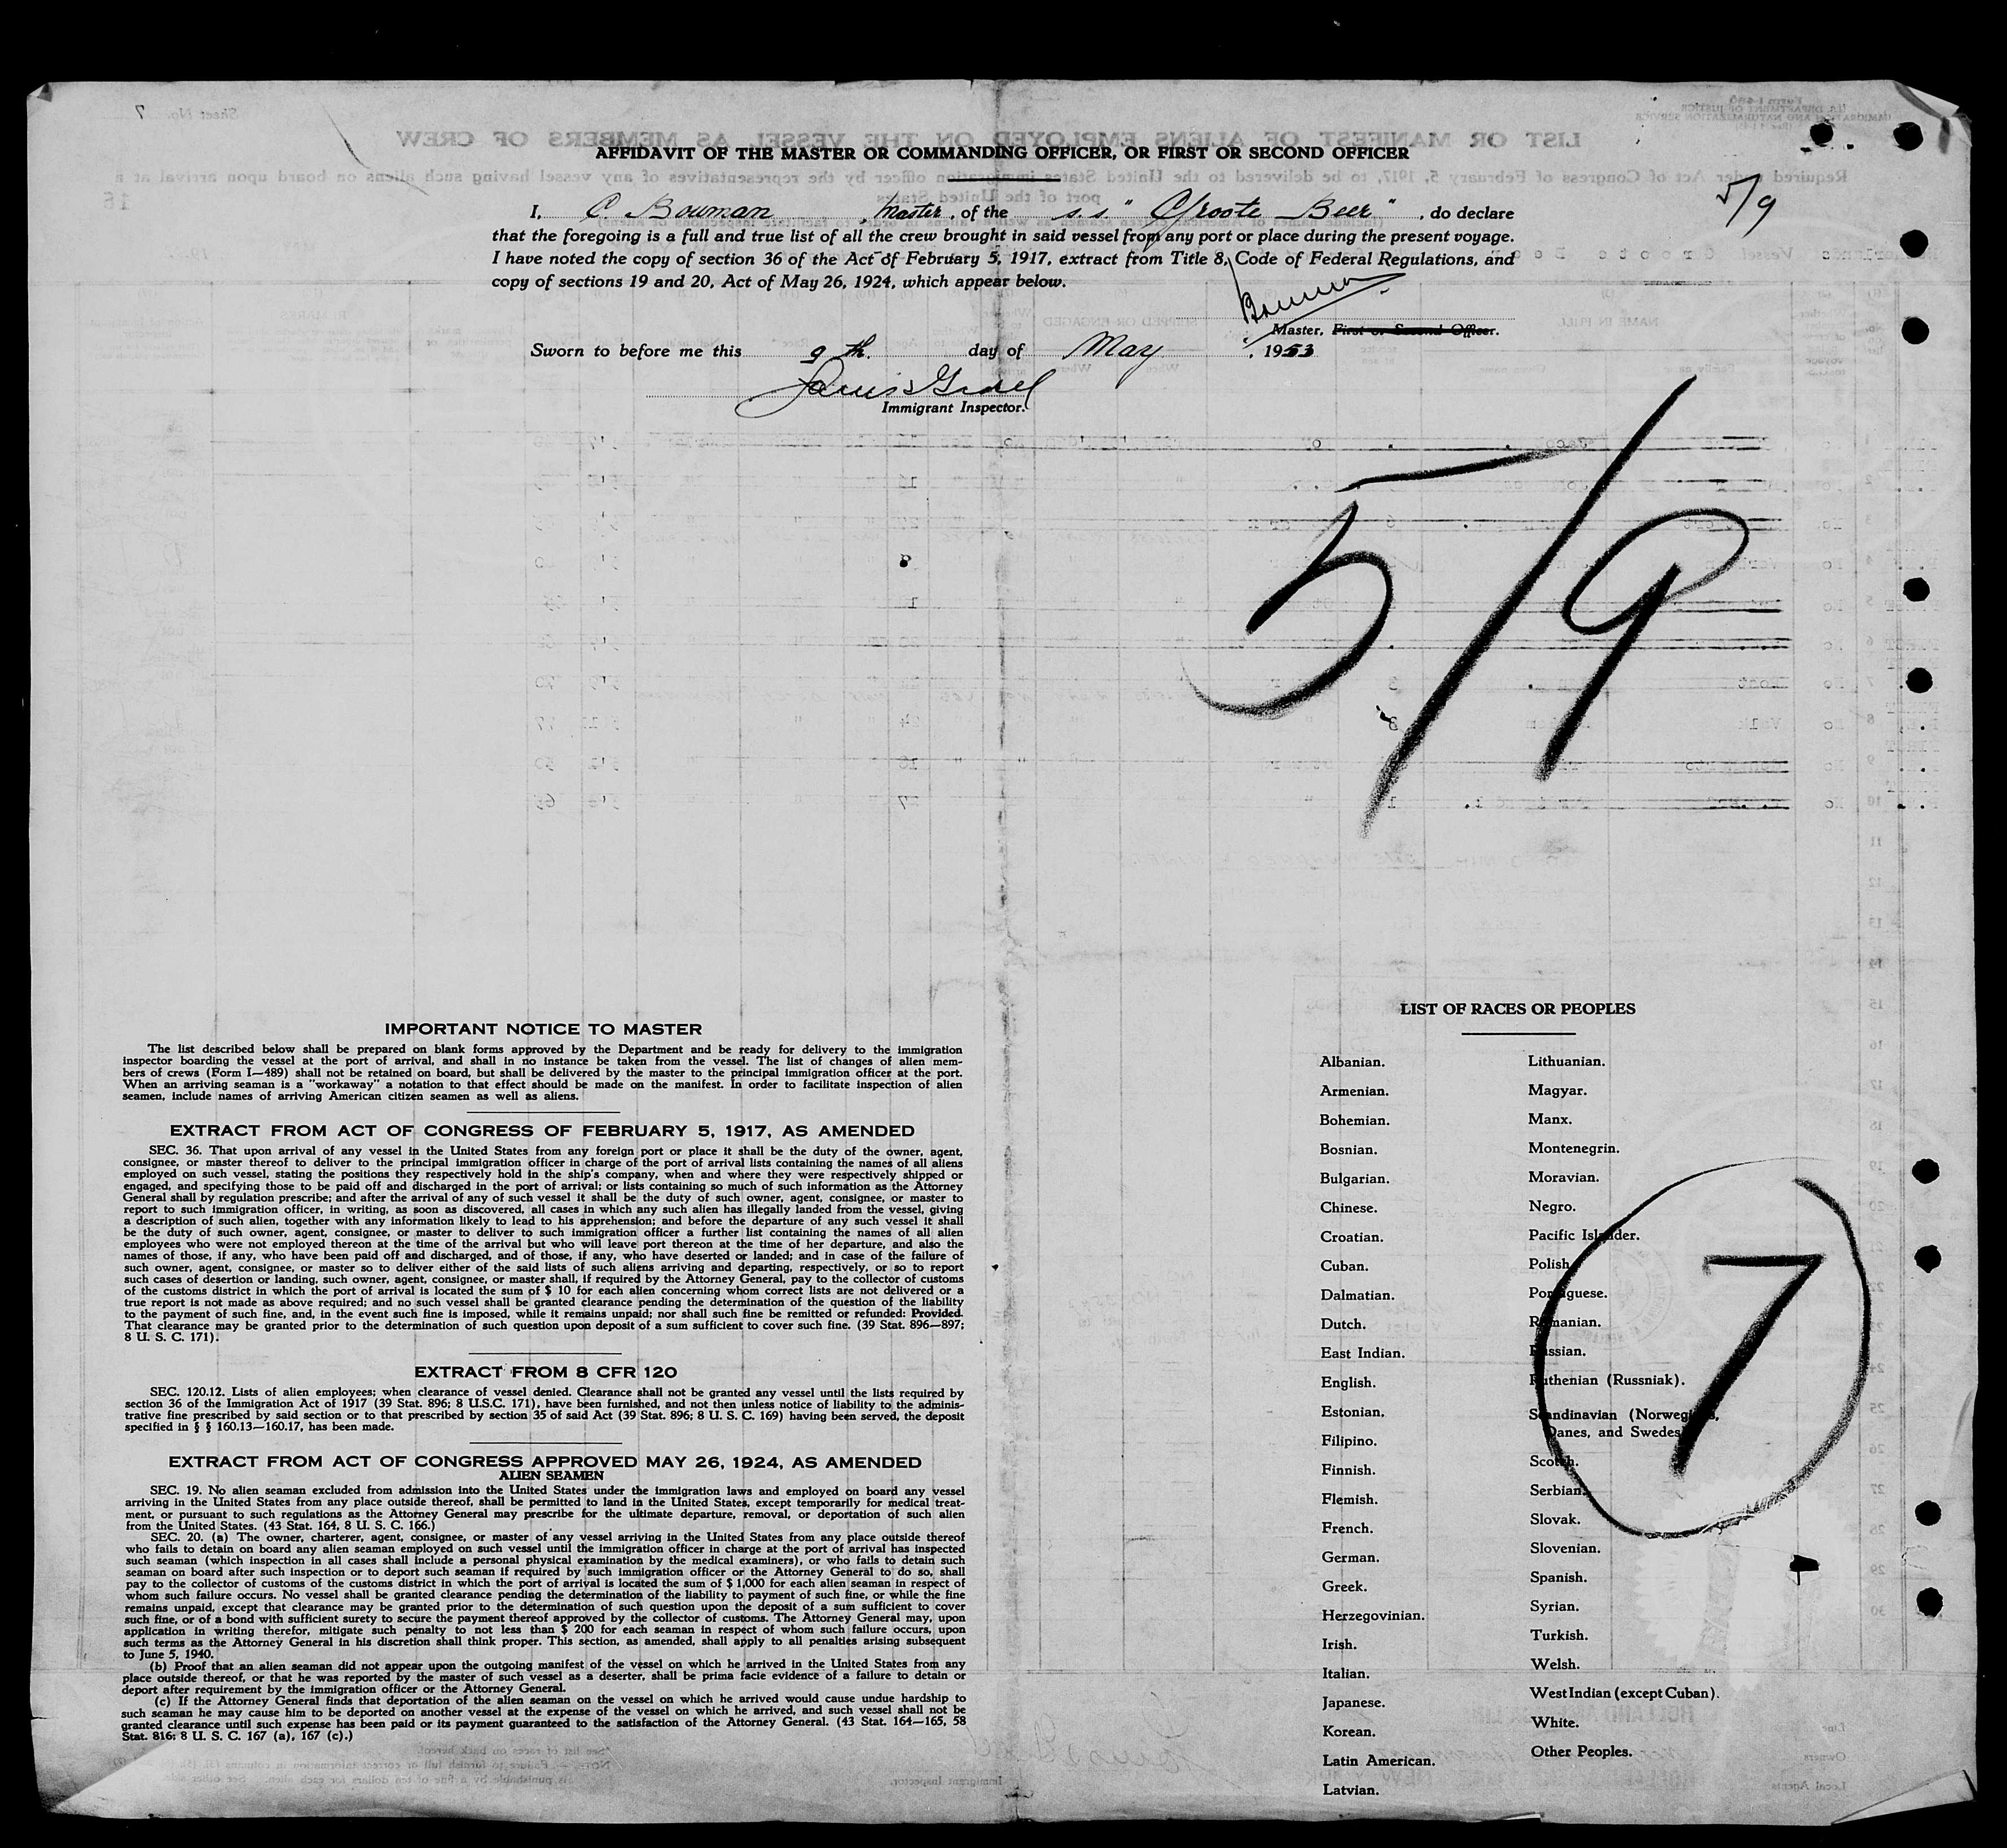 AFFIDAVIT OF THE MASTER OR COMMANDING OFFICER, OR FIRST OR SECOND OFFICER
5/9
I, C. Bouman, Master, of the s.s. "Groote Beer", do declare
that the foregoing is a full and true list of all the crew brought in said vessel from any port or place during the present voyage.
I have noted the copy of section 36 of the Act of February 5, 1917, extract from Title 8, Code of Federal Regulations, and
copy of sections 19 and 20, Act of May 26, 1924, which appear below.
Bouman
Master, First or Second Officer.
Sworn to before me this 9th. day of May, 1953
Immigrant Inspector.
5/9
IMPORTANT NOTICE TO MASTER
The list described below shall be prepared on blank forms approved by the Department and be ready for delivery to the immigration
inspector boarding the vessel at the port of arrival, and shall in no instance be taken from the vessel. The list of changes of alien mem-
bers of crews (Form I—489) shall not be retained on board, but shall be delivered by the master to the principal immigration officer at the port.
When an arriving seaman is a "workaway" a notation to that effect should be made on the manifest. In order to facilitate inspection of alien
seamen, include names of arriving American citizen seamen as well as aliens.
EXTRACT FROM ACT OF CONGRESS OF FEBRUARY 5, 1917, AS AMENDED
SEC. 36. That upon arrival of any vessel in the United States from any foreign port or place it shall be the duty of the owner, agent,
consignee, or master thereof to deliver to the principal immigration officer in charge of the port of arrival lists containing the names of all aliens
employed on such vessel, stating the positions they respectively hold in the ship's company, when and where they were respectively shipped or
engaged, and specifying those to be paid off and discharged in the port of arrival; or lists containing so much of such information as the Attorney
General shall by regulation prescribe; and after the arrival of any of such vessel it shall be the duty of such owner, agent, consignee, or master to
report to such immigration officer, in writing, as soon as discovered, all cases in which any such alien has illegally landed from the vessel, giving
a description of such alien, together with any information likely to lead to his apprehension; and before the departure of any such vessel it shall
be the duty of such owner, agent, consignee, or master to deliver to such immigration officer a further list containing the names of all alien
employees who were not employed thereon at the time of the arrival but who will leave port thereon at the time of her departure, and also the
names of those, if any, who have been paid off and discharged, and of those, if any, who have deserted or landed; and in case of the failure of
such owner, agent, consignee, or master so to deliver either of the said lists of such aliens arriving and departing, respectively, or so to report
such cases of desertion or landing, such owner, agent, consignee, or master shall, if required by the Attorney General, pay to the collector of customs
of the customs district in which the port of arrival is located the sum of $ 10 for each alien concerning whom correct lists are not delivered or a
true report is not made as above required; and no such vessel shall be granted clearance pending the determination of the question of the liability
to the payment of such fine, and, in the event such fine is imposed, while it remains unpaid; nor shall such fine be remitted or refunded: Provided.
That clearance may be granted prior to the determination of such question upon deposit of a sum sufficient to cover such fine. (39 Stat. 896—897;
8 U. S. C. 171).
EXTRACT FROM 8 CFR 120
SEC. 120.12. Lists of alien employees; when clearance of vessel denied. Clearance shall not be granted any vessel until the lists required by
section 36 of the Immigration Act of 1917 (39 Stat. 896; 8 U.S.C. 171), have been furnished, and not then unless notice of liability to the adminis-
trative fine prescribed by said section or to that prescribed by section 35 of said Act (39 Stat. 896; 8 U. S. C. 169) having been served, the deposit
specified in § § 160.13—160.17, has been made.
EXTRACT FROM ACT OF CONGRESS APPROVED MAY 26, 1924, AS AMENDED
ALIEN SEAMEN
SEC. 19. No alien seaman excluded from admission into the United States under the immigration laws and employed on board any vessel
arriving in the United States from any place outside thereof, shall be permitted to land in the United States, except temporarily for medical treat-
ment, or pursuant to such regulations as the Attorney General may prescribe for the ultimate departure, removal, or deportation of such alien
from the United States. (43 Stat. 164, 8 U. S. C. 166.)
SEC. 20. (a) The owner, charterer, agent, consignee, or master of any vessel arriving in the United States from any place outside thereof
who fails to detain on board any alien seaman employed on such vessel until the immigration officer in charge at the port of arrival has inspected
such seaman (which inspection in all cases shall include a personal physical examination by the medical examiners), or who fails to detain such
seaman on board after such inspection or to deport such seaman if required by such immigration officer or the Attorney General to do so, shall
pay to the collector of customs of the customs district in which the port of arrival is located the sum of $ 1,000 for each alien seaman in respect of
whom such failure occurs. No vessel shall be granted clearance pending the determination of the liability to payment of such fine, or while the fine
remains unpaid, except that clearance may be granted prior to the determination of such question upon the deposit of a sum sufficient to cover
such fine, or of a bond with sufficient surety to secure the payment thereof approved by the collector of customs. The Attorney General may, upon
application in writing therefor, mitigate such penalty to not less than $ 200 for each seaman in respect of whom such failure occurs, upon
such terms as the Attorney General in his discretion shall think proper. This section, as amended, shall apply to all penalties arising subsequent
to June 5, 1940.
(b) Proof that an alien seaman did not appear upon the outgoing manifest of the vessel on which he arrived in the United States from any
place outside thereof, or that he was reported by the master of such vessel as a deserter, shall be prima facie evidence of a failure to detain or
deport after requirement by the immigration officer or the Attorney General.
(c) If the Attorney General finds that deportation of the alien seaman on the vessel on which he arrived would cause undue hardship to
such seaman he may cause him to be deported on another vessel at the expense of the vessel on which he arrived, and such vessel shall not be
granted clearance until such expense has been paid or its payment guaranteed to the satisfaction of the Attorney General. (43 Stat. 164—165, 58
Stat. 816; 8 U. S. C. 167 (a), 167 (c).)
LIST OF RACES OR PEOPLES
Albanian.
Armenian.
Bohemian.
Bosnian.
Bulgarian.
Chinese.
Croatian.
Cuban.
Dalmatian.
Dutch.
East Indian.
English.
Estonian.
Filipino.
Finnish.
Flemish.
French.
German.
Greek.
Herzegovinian.
Irish.
Italian.
Japanese.
Korean.
Latin American.
Latvian.
Lithuanian.
Magyar.
Manx.
Montenegrin.
Moravian.
Negro.
Pacific Islander.
Polish.
Portuguese.
Romanian.
Russian.
Ruthenian (Russniak).
Scandinavian (Norwegians,
Danes, and Swedes).
Scotch.
Serbian.
Slovak.
Slovenian.
Spanish.
Syrian.
Turkish.
Welsh.
West Indian (except Cuban).
White.
Other Peoples.
7